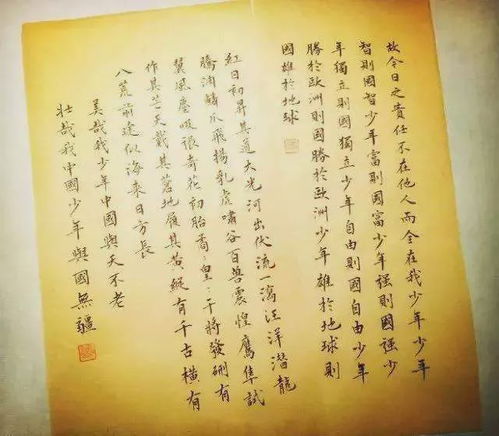 故今日之責任不在他人而全在我少年少年
智則國智少年富則國富少年強則國強少
年獨立則國獨立少年自由則國自由少年
勝於歐洲則國勝於歐洲少年雄於地球則
國雄於地球
紅日初昇其道大光河出伏流一瀉汪洋潛龍
騰淵鱗爪飛揚乳虎嘯谷百獸震惶鷹隼試
翼風塵吸張奇花初胎矞〻皇〻干將發硎有
作其芒天戴其蒼地履其黃縱有千古橫有
八荒前途似海來日方長
美哉我少年中國與天不老
壯哉我中國少年與國無疆